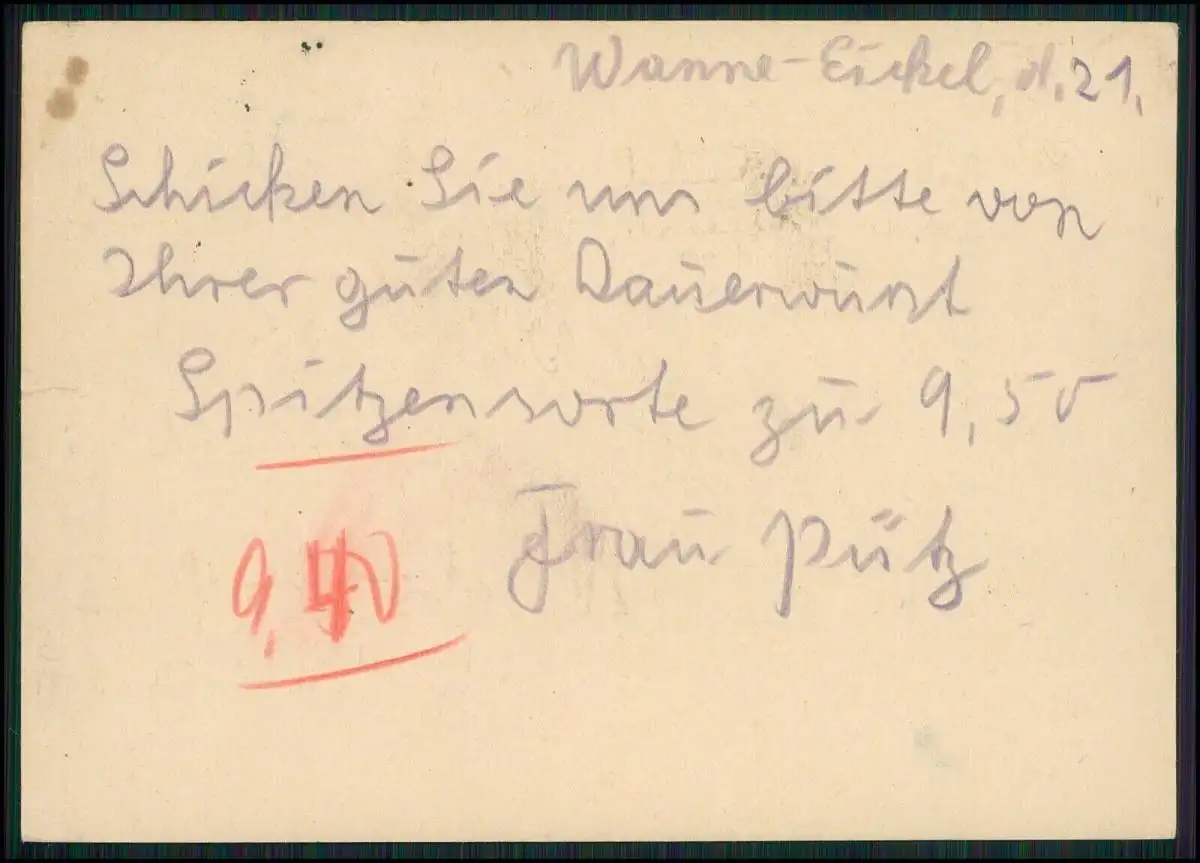 Wanne-Eickel, d. 21.
Schicken Sie uns bitte von
Ihrer guten Dauerwurst
Spitzensorte zu 9,50
Frau Pütz
9,40